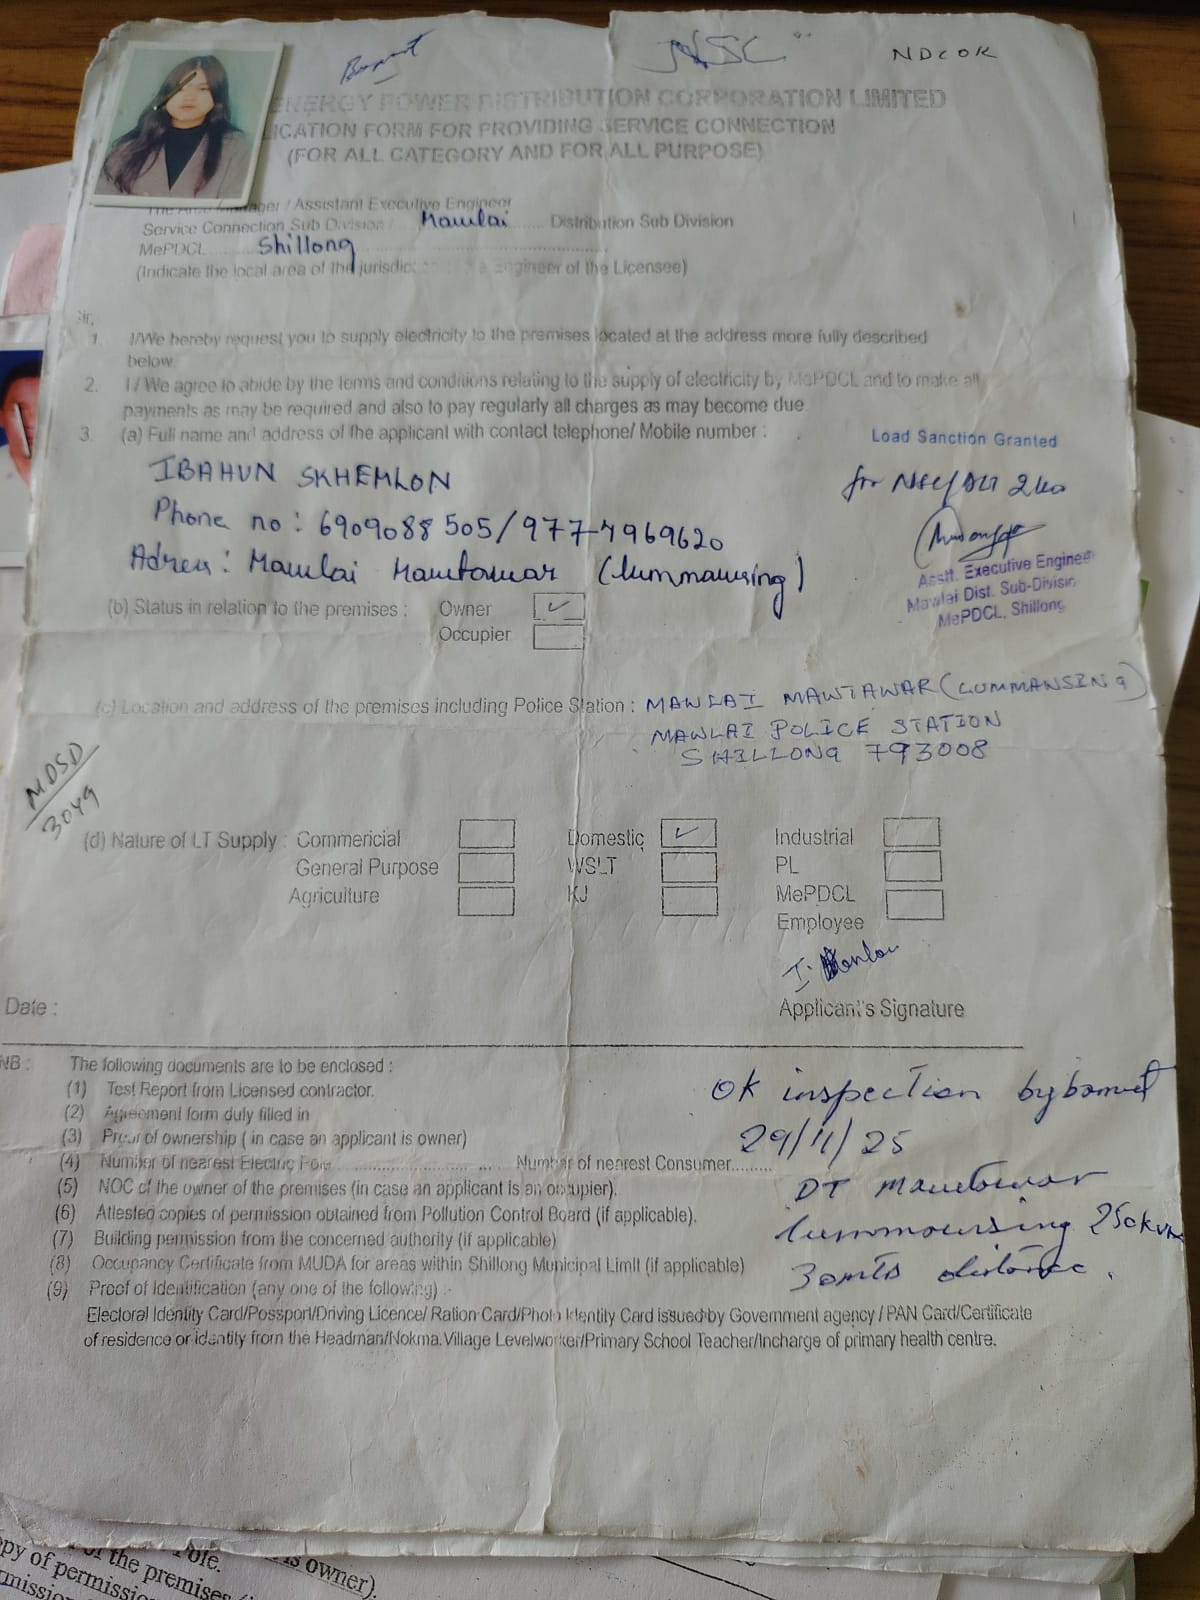 NSC
NDCOK
ENERGY POWER DISTRIBUTION CORPORATION LIMITED
ICATION FORM FOR PROVIDING SERVICE CONNECTION
(FOR ALL CATEGORY AND FOR ALL PURPOSE)
The Area Manager / Assistant Executive Engineer
Service Connection Sub Division / Mawlai Distribution Sub Division
MePDCL Shillong
(Indicate the local area of the jurisdic Engineer of the Licensee)
Sir,
1. I/We hereby request you to supply electricity to the premises located at the address more fully described
below
2. I / We agree to abide by the terms and conditions relating to the supply of electricity by MePDCL and to make all
payments as may be required and also to pay regularly all charges as may become due.
3. (a) Full name and address of the applicant with contact telephone/ Mobile number :
Load Sanction Granted
IBAHUN SKHEMLON
for NSC/
Phone no : 6909088505/9774969620
Adress : Mawlai Mawtawar (lummawsing)
Asstt. Executive Engineer
Mawlai Dist. Sub-Division
MePDCL, Shillong
(b) Status in relation to the premises : Owner ✓
Occupier
(c) Location and address of the premises including Police Station : MAWLAI MAWTAWAR (LUMMANSING)
MAWLAI POLICE STATION
SHILLONG 793008
MDSD
3049
(d) Nature of LT Supply : Commericial Domestic ✓ Industrial
General Purpose WSLT PL
Agriculture KJ MePDCL
Employee
Date :
Applicant's Signature
NB : The following documents are to be enclosed :
(1) Test Report from Licensed contractor.
(2) Agreement form duly filled in
(3) Proof of ownership ( in case an applicant is owner)
(4) Number of nearest Electric Pole Number of nearest Consumer.........
(5) NOC of the owner of the premises (in case an applicant is an occupier).
(6) Attested copies of permission obtained from Pollution Control Board (if applicable).
(7) Building permission from the concerned authority (if applicable)
(8) Occupancy Certificate from MUDA for areas within Shillong Municipal Limit (if applicable)
(9) Proof of Identification (any one of the following) :-
Electoral Identity Card/Possport/Driving Licence/ Ration Card/Photo Identity Card issued by Government agency / PAN Card/Certificate
of residence or identity from the Headman/Nokma. Village Levelworker/Primary School Teacher/Incharge of primary health centre.
OK inspection by
29/11/25
DT Mawtawar
lummawsing 250kva
30mts distance.
Pole.
of the premises
is owner).
opy of permission